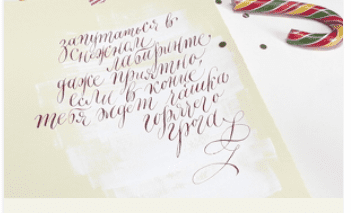 запутаться в
снежном
лабиринте
даже приятно,
если в конце
тебя ждет чашка
горячего
грога